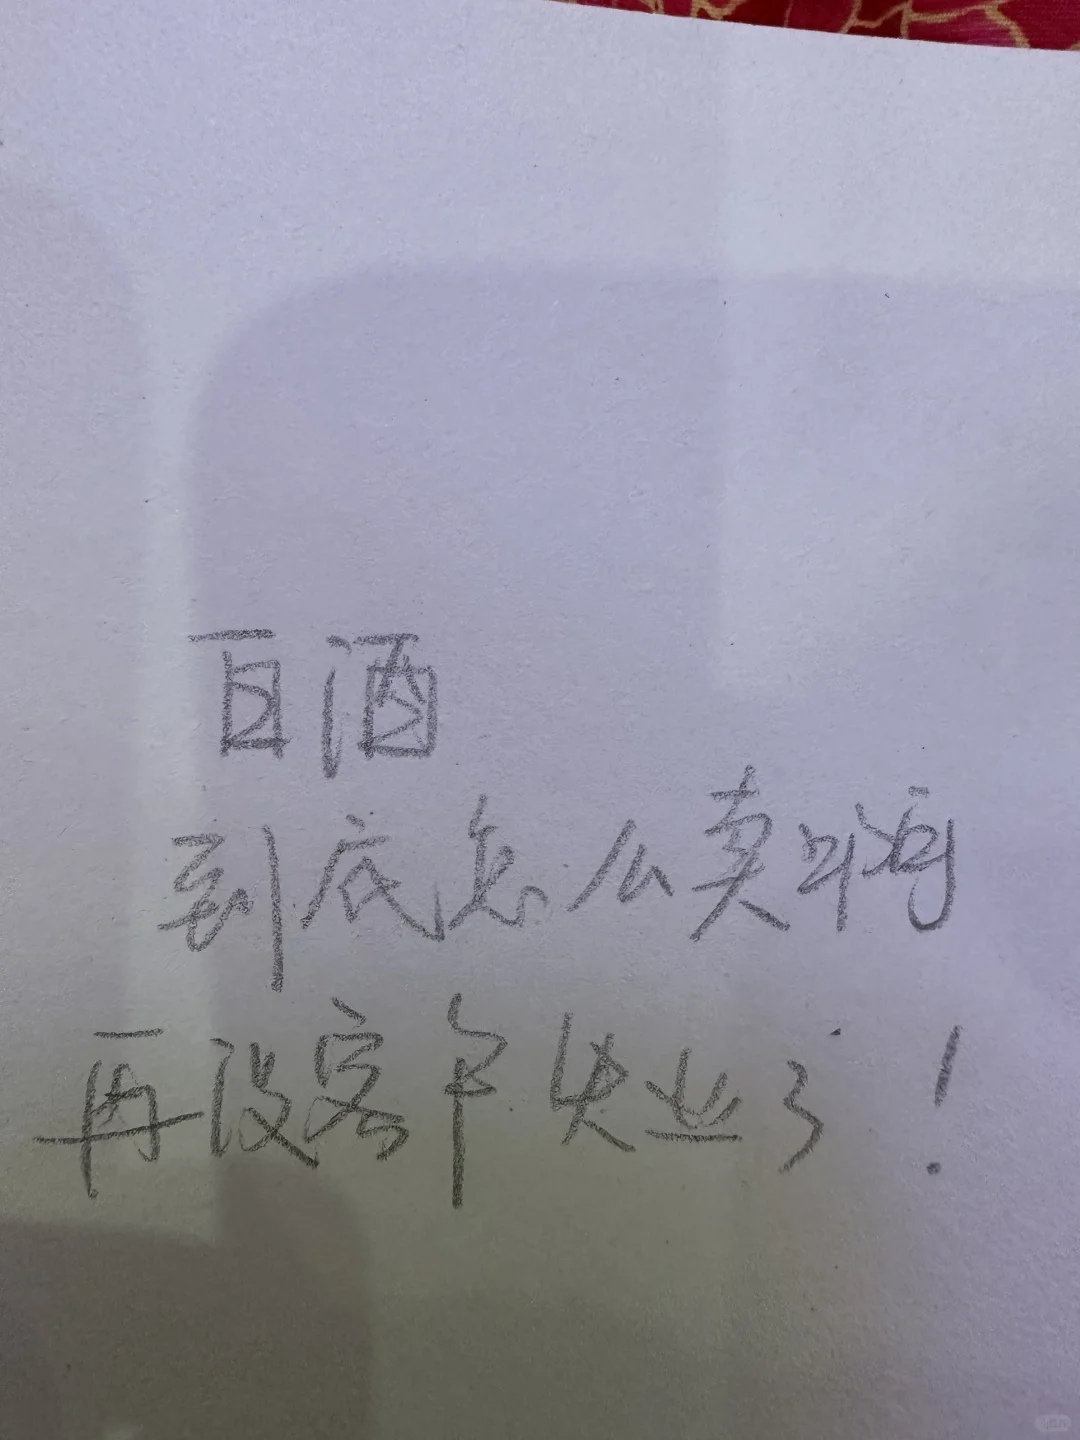 百酒
到底怎么卖啊
再没客户失业了！